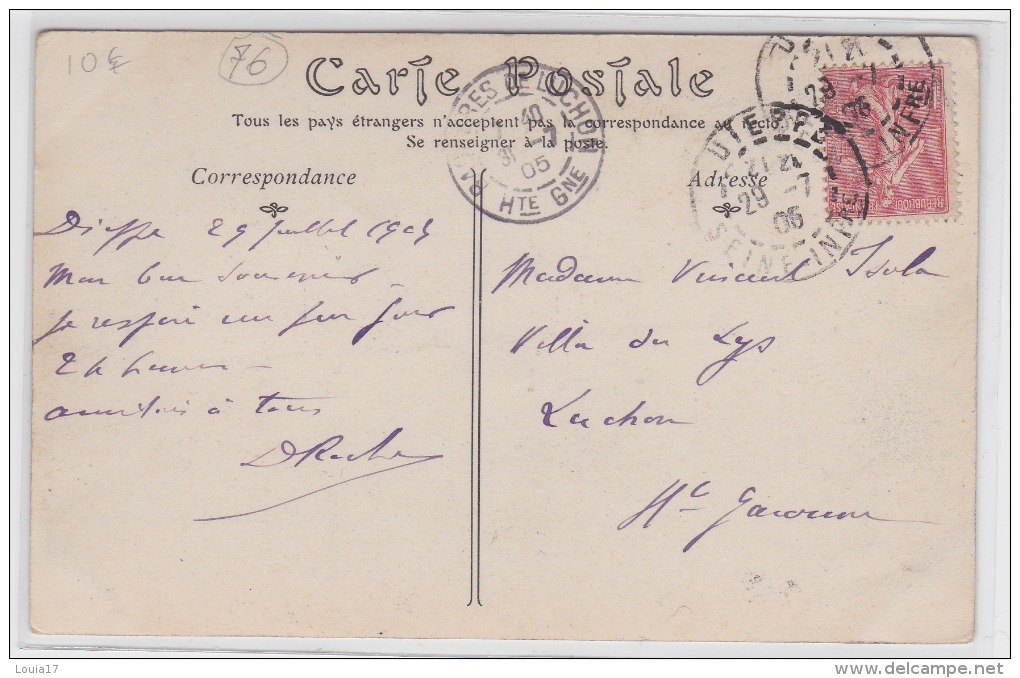 10 €
76
Carte Postale
Tous les pays étrangers n'acceptent pas la correspondance au recto.
Se renseigner à la poste.
Correspondance
Dieppe 29 Juillet 1905
Mon bon souvenir
Je respire un peu pour
24 heures
amitiés à tous
DRoche
Adresse
Madame Vincent Isola
Villa du Lys
Luchon
Hte Garonne
DE LUCHON
HTE GNE
31 -7
05
29 -7
05
SEINE INFRE
29 -7
05
INFRE
REPUBLIQUE FRANÇAISE
Louia17
www.delcampe.net